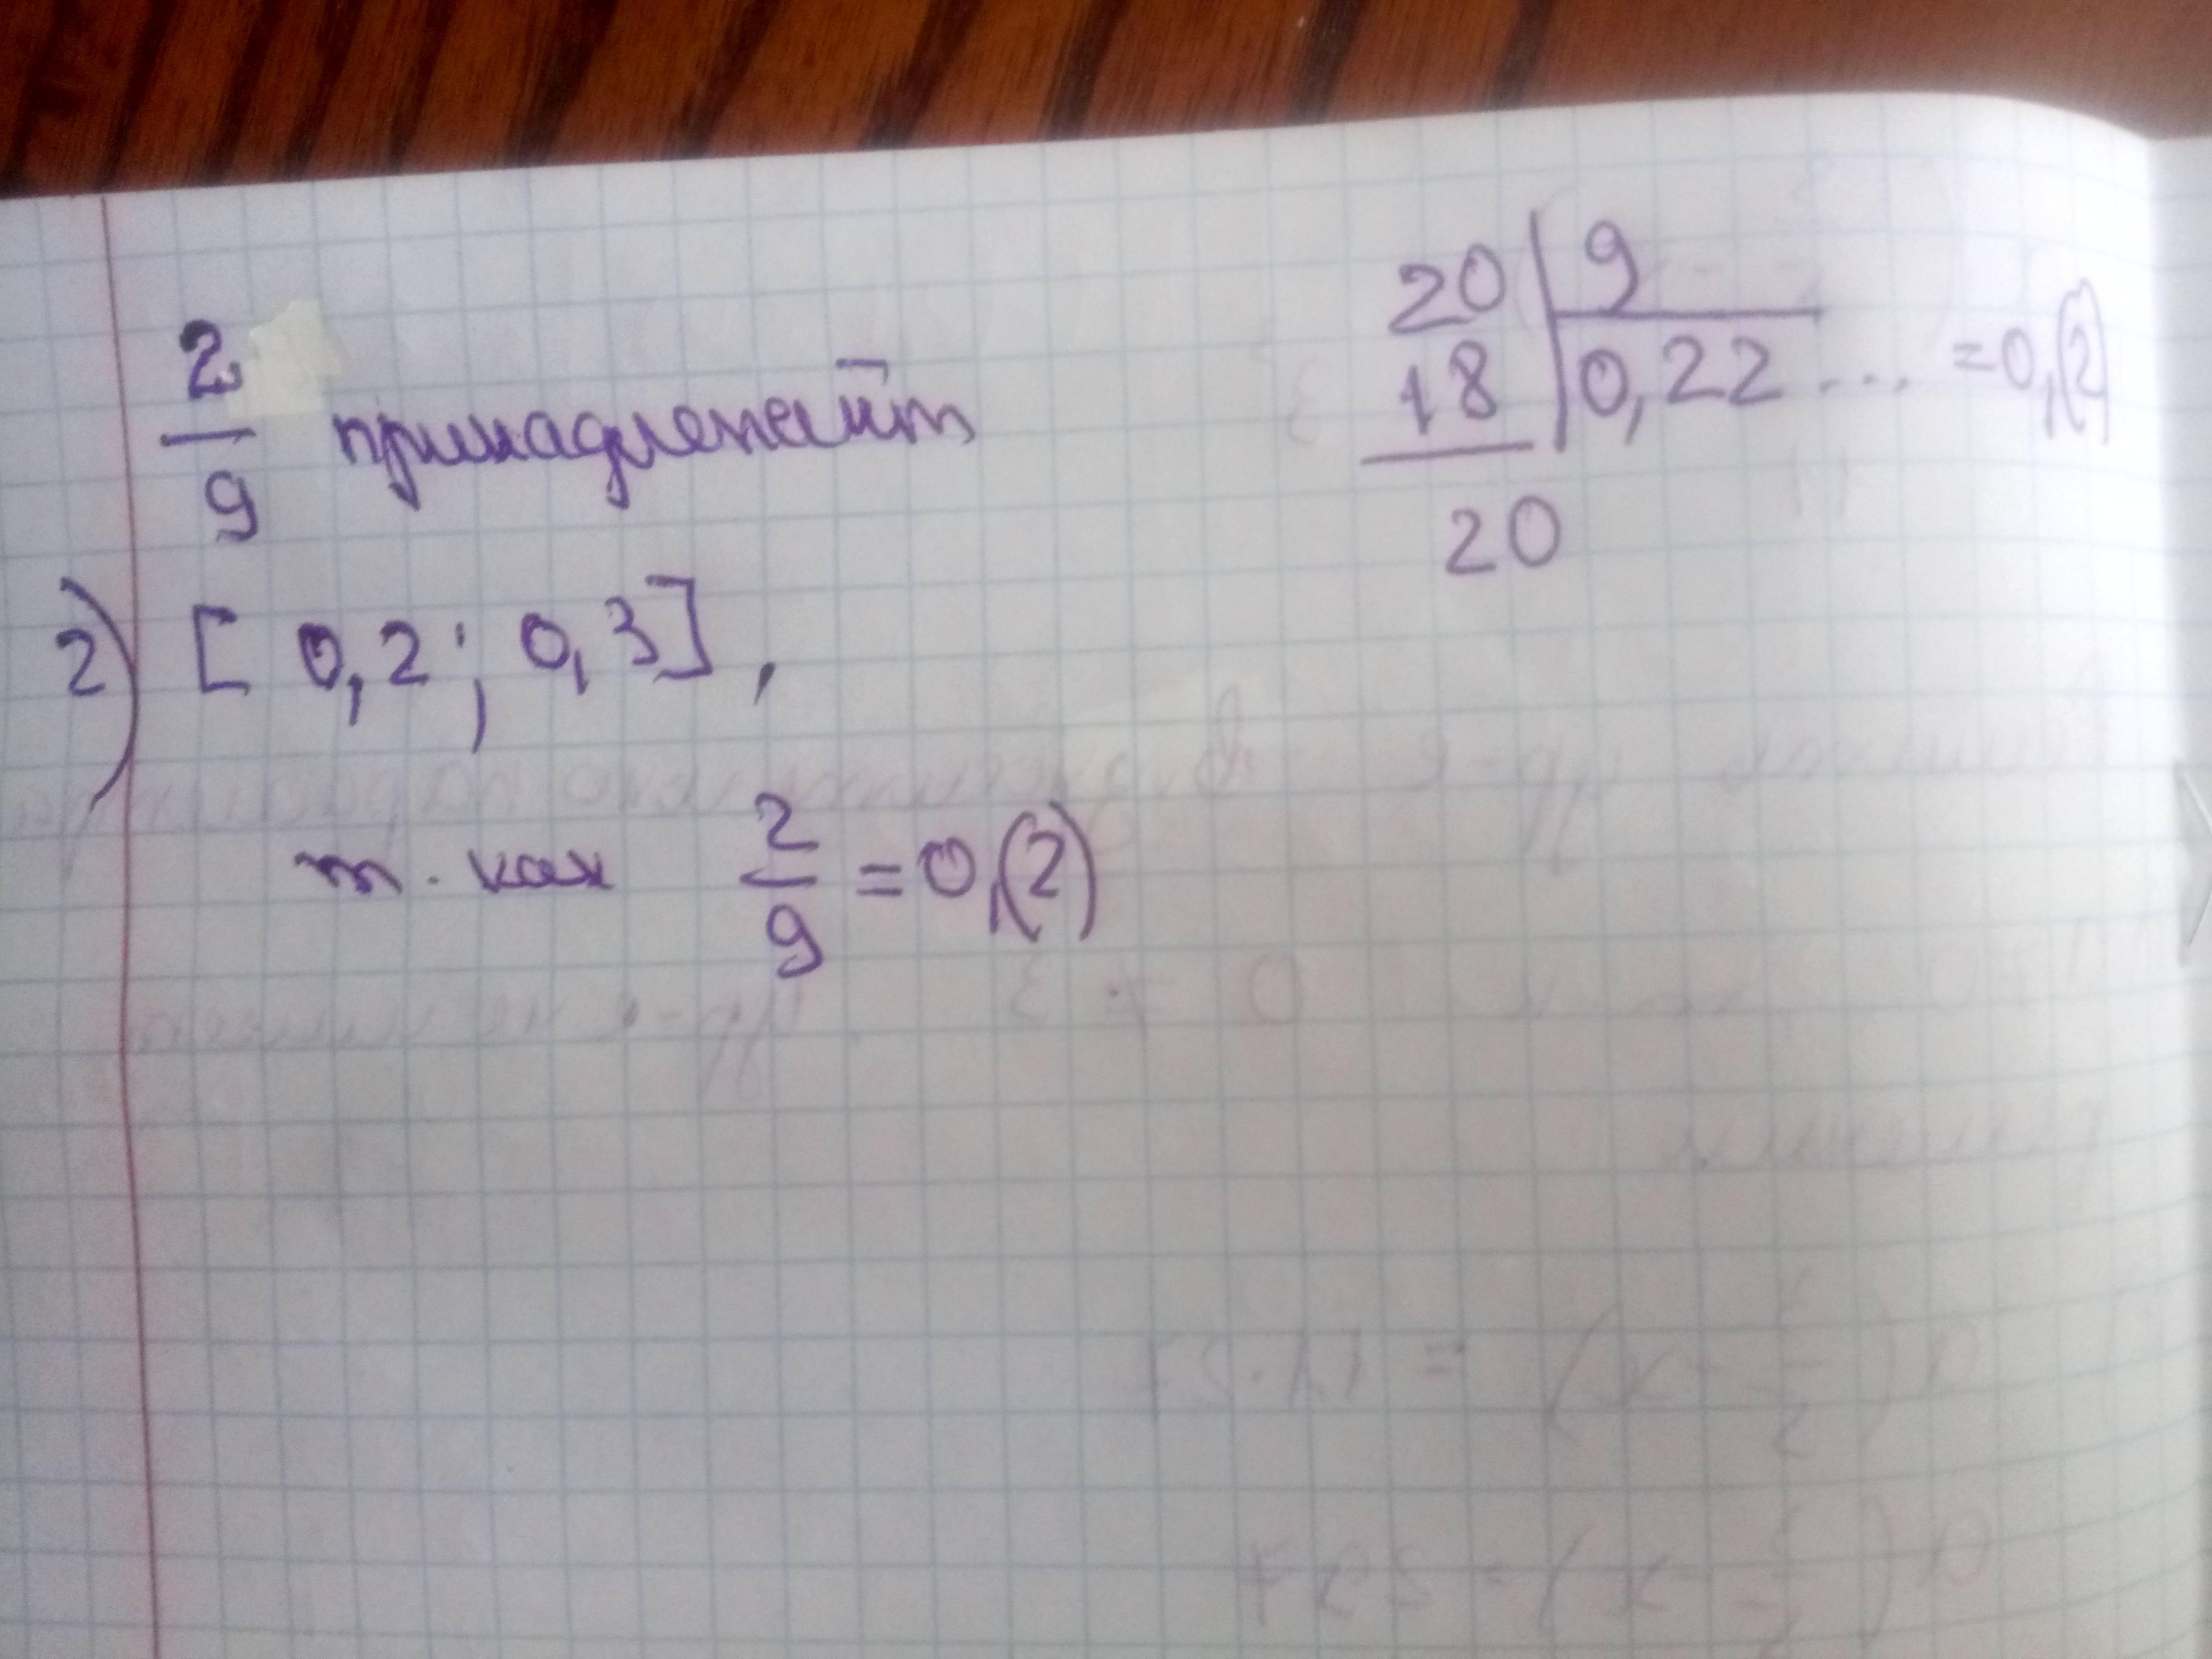 2/9 принадлежит
2) [0,2; 0,3],
т. как 2/9 = 0,(2)
20 | 9
18 | 0,22... = 0,(2)
20